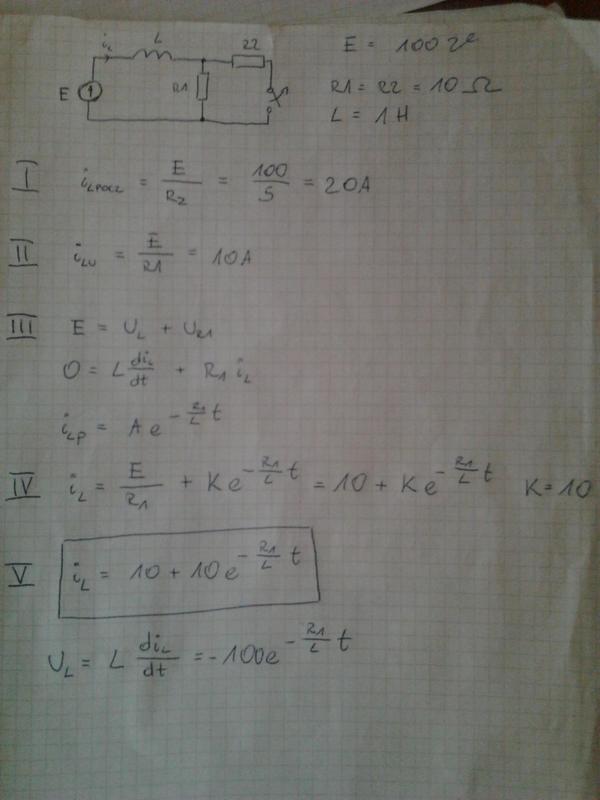 i_L L R2 E = 100 V
E R1 R1 = R2 = 10 Ω
L = 1 H
I i_Lpocz = E/R_Z = 100/5 = 20A
II i_LU = E/R1 = 10A
III E = U_L + U_R1
0 = L di_L/dt + R_1 i_L
i_Lp = A e^(-R1/L t)
IV i_L = E/R_1 + K e^(-R1/L t) = 10 + K e^(-R1/L t) K = 10
V i_L = 10 + 10 e^(-R1/L t)
U_L = L di_L/dt = -100e^(-R1/L t)